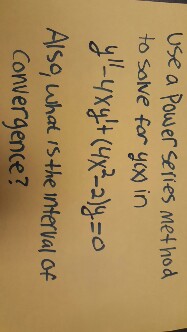 Use a Power series method
to solve for y(x) in
y''-4xy'+(4x²-2)y=0
Also, what is the interval of
convergence?